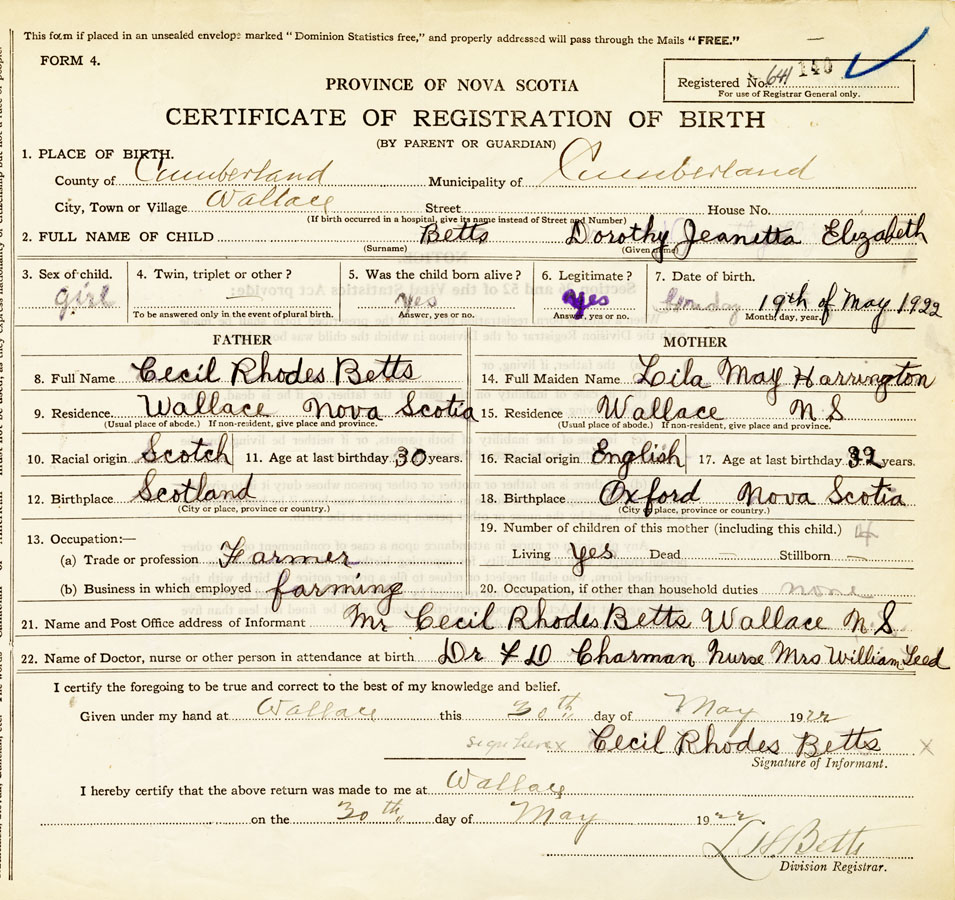 This form if placed in an unsealed envelope marked "Dominion Statistics free," and properly addressed will pass through the Mails "FREE."
FORM 4.
Registered No. 641 140
For use of Registrar General only.
PROVINCE OF NOVA SCOTIA
CERTIFICATE OF REGISTRATION OF BIRTH
(BY PARENT OR GUARDIAN)
1. PLACE OF BIRTH.
County of Cumberland Municipality of Cumberland
City, Town or Village Wallace Street House No.
(If birth occurred in a hospital, give its name instead of Street and Number)
2. FULL NAME OF CHILD Betts Dorothy Jeanetta Elizabeth
(Surname) (Given name)
3. Sex of child. 4. Twin, triplet or other? 5. Was the child born alive? 6. Legitimate? 7. Date of birth.
girl — yes yes 19th of May 1922
To be answered only in the event of plural birth. Answer, yes or no. Answer, yes or no. Month, day, year.
FATHER MOTHER
8. Full Name Cecil Rhodes Betts 14. Full Maiden Name Lila May Harrington
9. Residence. Wallace Nova Scotia 15. Residence Wallace N S
(Usual place of abode.) If non-resident, give place and province. (Usual place of abode.) If non-resident, give place and province.
10. Racial origin Scotch 11. Age at last birthday 30 years. 16. Racial origin English 17. Age at last birthday 32 years.
12. Birthplace Scotland 18. Birthplace Oxford Nova Scotia
(City or place, province or country.) (City or place, province or country.)
19. Number of children of this mother (including this child.) 4
13. Occupation:— Living yes Dead — Stillborn —
(a) Trade or profession Farmer
(b) Business in which employed farming 20. Occupation, if other than household duties none
21. Name and Post Office address of Informant Mr Cecil Rhodes Betts Wallace N S
22. Name of Doctor, nurse or other person in attendance at birth Dr F D Charman Nurse Mrs William Teed
I certify the foregoing to be true and correct to the best of my knowledge and belief.
Given under my hand at Wallace this 30th day of May 1922
sign here x Cecil Rhodes Betts x
Signature of Informant.
I hereby certify that the above return was made to me at Wallace
on the 30th day of May 1922
Betts
Division Registrar.